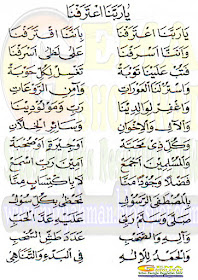 يَارَبَّنَا اعْتَرَفْنَا
يَارَبَّنَا اعْتَرَفْنَا بِأَنَّنَا اقْتَرَفْنَا
وَاَنَّنَا اَسْرَفْنَا عَلَى لَظَى اَشْرَفْنَا
فَتُبْ عَلَيْنَا تَوْبَةْ تَغْسِلْ لِكُلِّ حَوْبَةْ
وَاسْتُرْ لَنَا الْعَوْرَاتِ وَاٰمِنِ الرَّوْعَاتِ
وَاغْفِرْ لِوَالِدِيْنَا رَبِّ وَمَوْلُوْدِيْنَا
وَالْاٰلِ وَالْاِخْوَانِ وَسَائِرِ الْخِلَّانِ
وَكُلِّ ذِيْ مَحَبَّةْ اَوْجِيْرَةٍ اَوْصُحْبَةْ
وَالْمُسْلِمِيْنَ اَجْمَعْ اٰمِيْنَ رَبِّ اسْمَعْ
فَضْلًا وَجُوْدًا مَنَّا لَا بِاكْتِسَابٍ مِنَّا
بِالْمُصْطَفَى الرَّسُوْلِ نَحْظَى بِكُلِّ سُوْلِ
صَلَّى وَسَلَّمْ رَبِّيْ عَلَيْهِ عَدَّ الْحَبِّ
وَاٰلِهِ وَالصَّحْبِ عَدَدَ طَشِّ السُّحْبِ
وَالْحَمْدُ لِلْاِلٰهِ فِى الْبَدْءِ وَالتَّنَاهِيْ